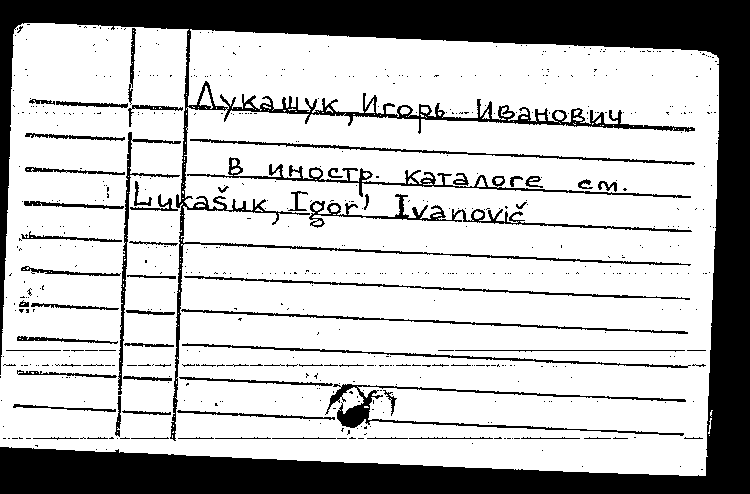 Лукашук, Игорь Иванович
в иностр. каталоге см.
Lukašuk, Igor' Ivanovič